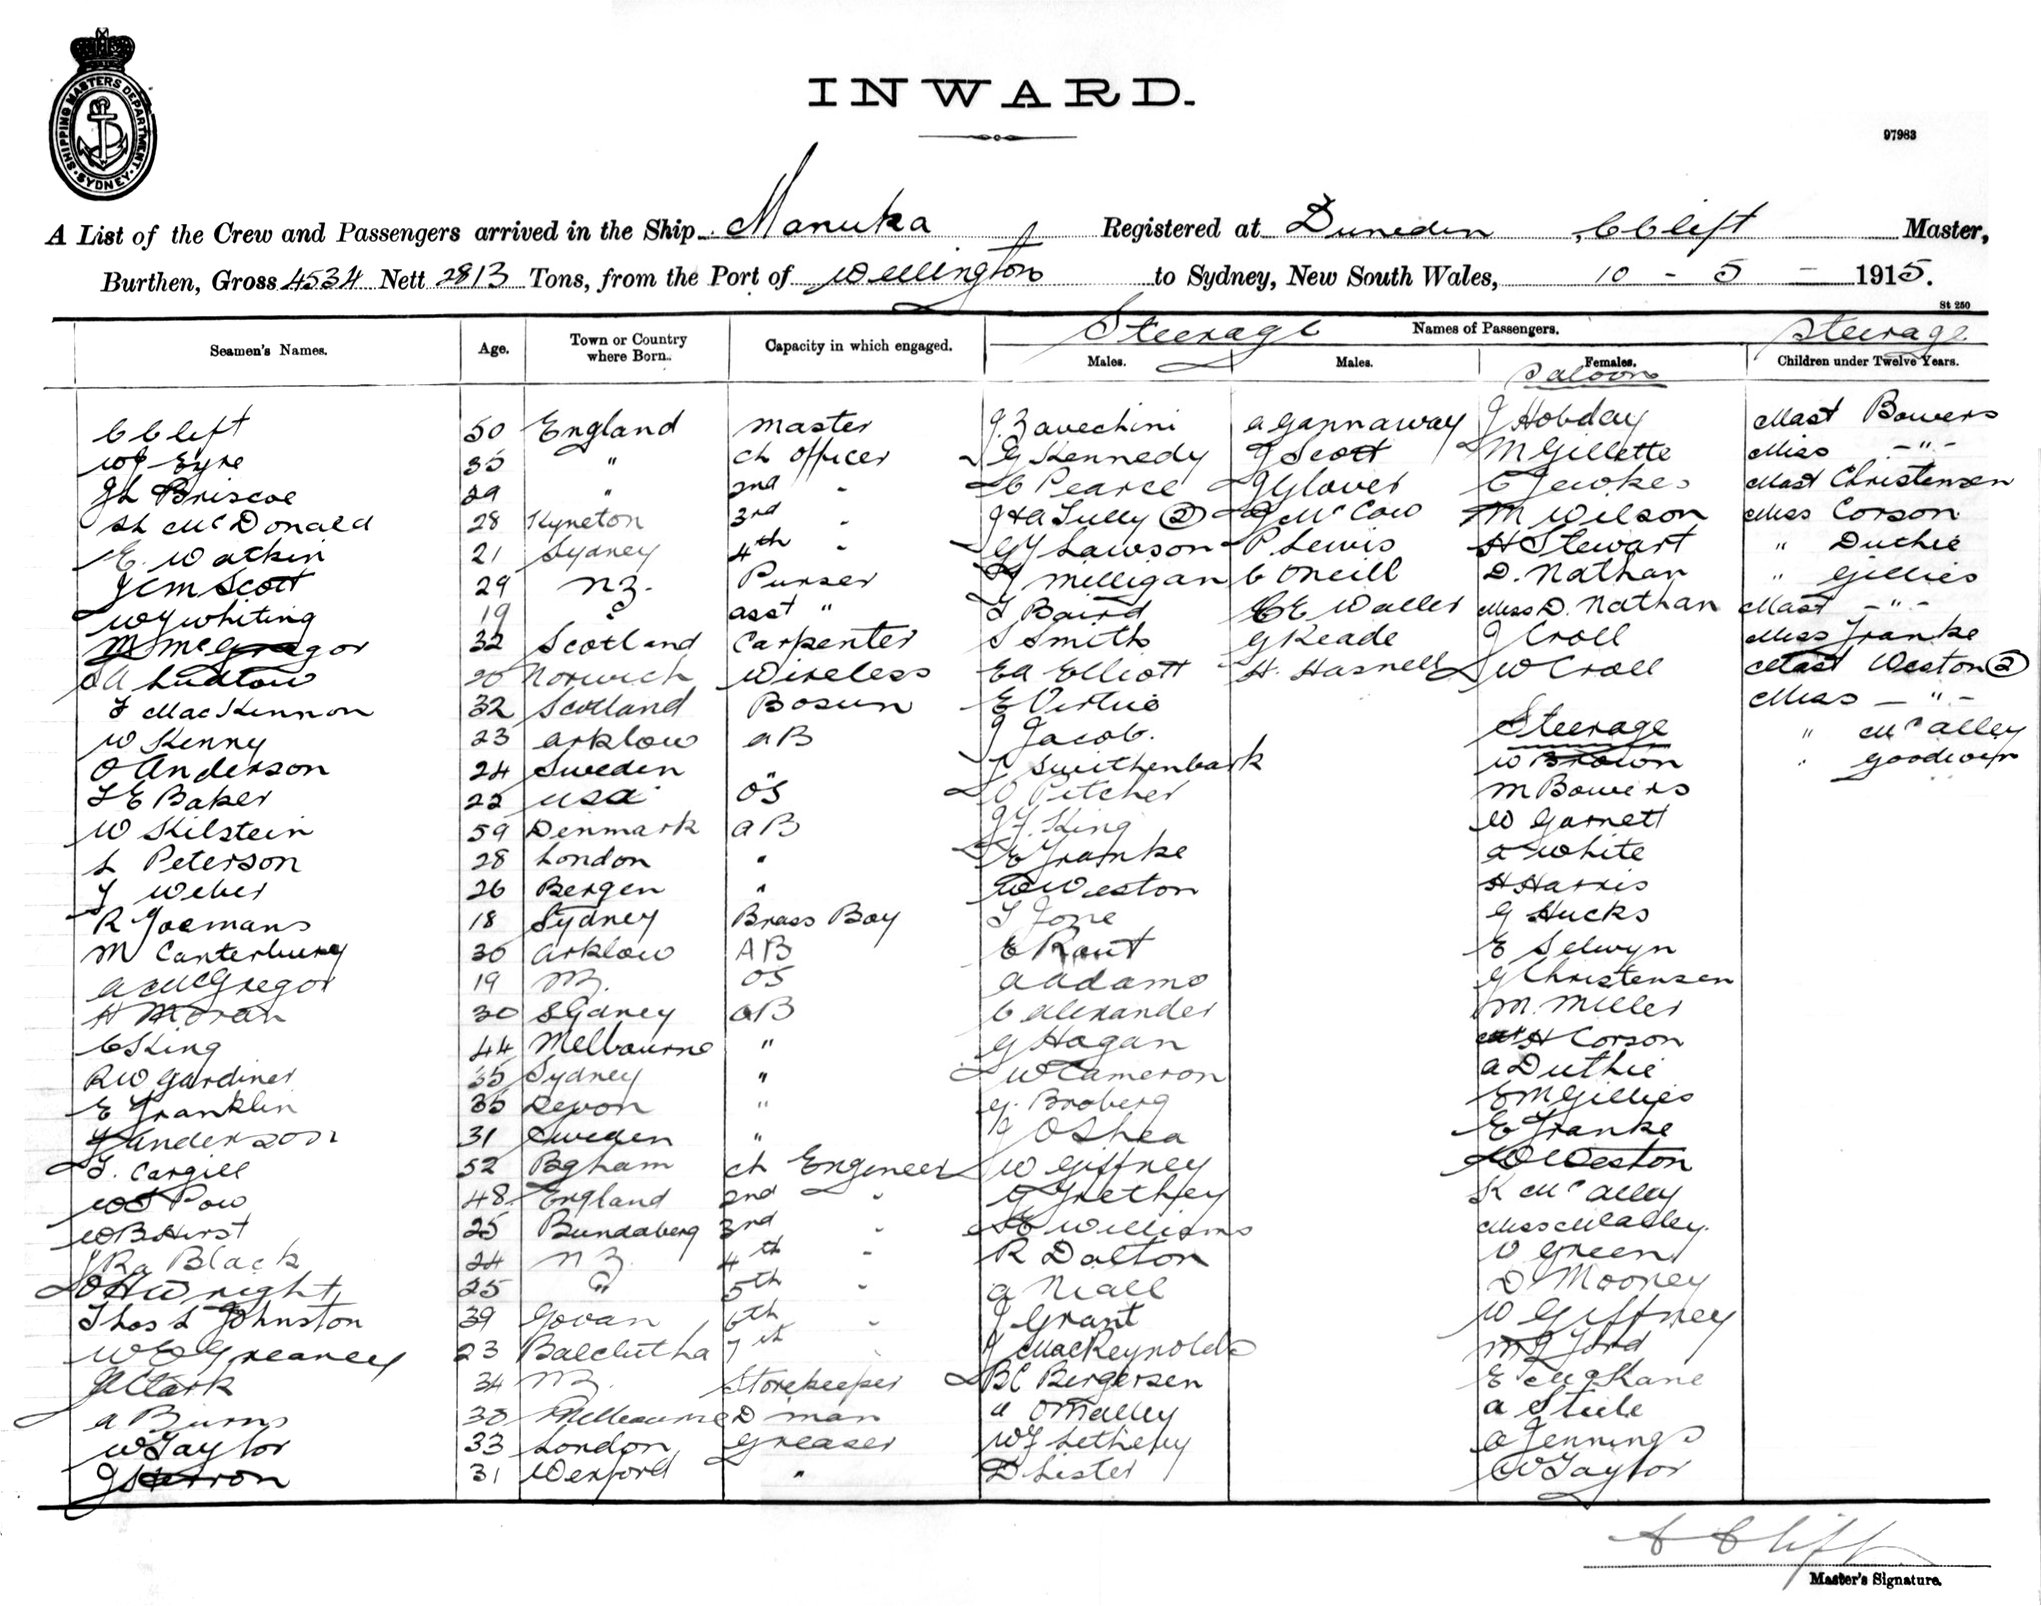 SHIPPING MASTERS DEPARTMENT. SYDNEY.
INWARD.
97983
A List of the Crew and Passengers arrived in the Ship Manuka Registered at Dunedin C Clift Master,
Burthen, Gross 4534 Nett 2813 Tons, from the Port of Wellington to Sydney, New South Wales, 10 - 5 - 1915.
St 250
Seamen's Names. Age. Town or Country where Born. Capacity in which engaged. Steerage Names of Passengers. Steerage
Males. Males. Females. Children under Twelve Years.
Saloon
C Clift 50 England Master J. Zavechini A Gannaway J Hobday Mast Bowers
WJ Eyre 35 " Ch Officer G Kennedy J Scott M Gillette Miss - " -
JL Briscoe 29 " 2nd " C Pearce J Glover C Jewkes Mast Christensen
McDonald 28 Kyneton 3rd " J & A Tully (2) McCaw M Wilson Miss Corson
E. Watkin 21 Sydney 4th " GY Lawson P Lewis H Stewart " Duthie
JCM Scott 29 NZ. Purser Milligan C Oneill D. Nathan " Gillies
WJ Whiting 19 " Asst " T Baird CE Waller Miss D. Nathan Mast - " -
M McGregor 32 Scotland Carpenter S Smith G Reade J Croll Miss Franke
A Ludlow 20 Norwich Wireless EA Elliott H. Hasnell W Croll Mast Weston (2)
MacKinnon 32 Scotland Bosun E Virtue Miss - " -
W Kenny 23 Arklow AB J Jacob. Steerage " McAlley
O Anderson 24 Sweden " Swithenbank W Brown " Goodwyn
T E Baker 22 USA OS Pitcher M Bowers
W Kilstein 59 Denmark AB JF King W Garnett
L Peterson 28 London " E Franke A White
Weber 26 Bergen " W Weston H Harris
R Joemans 18 Sydney Brass Boy Jone G Hucks
M Canterbury 30 Arklow AB E Rout E Selwyn
A McGregor 19 NZ. OS A Adams G Christensen
H Moran 30 Sydney AB C Alexander M. Miller
C King 44 Melbourne " G Hogan H Corson
RW Gardiner 35 Sydney " W Cameron A Duthie
E Franklin 35 Devon " G. Broberg EM Gillies
Anderson 31 Sweden " J OShea E Franke
T. Cargill 52 Bgham Ch Engineer W Giffney W Weston
WS Pow 48 England 2nd " Grethey K McAlley
WB Hirst 25 Bundaberg 3rd " Williams Miss McAlley.
Black 24 NZ 4th " R Dalton Green
Wright 25 " 5th " A Niall D Mooney
Thos L Johnston 39 Govan 6th " J Grant W Giffney
Greaney 23 Balclutha 7th " J MacReynolds Ford
Clark 34 NZ. Storekeeper BC Bergersen E McKane
A Burns 38 Melbourne D man A OMalley A Steele
W Taylor 33 London Greaser WJ Letheby A Jennings
J Herron 31 Wexford " D Lister W Taylor
C Clift
Master's Signature.